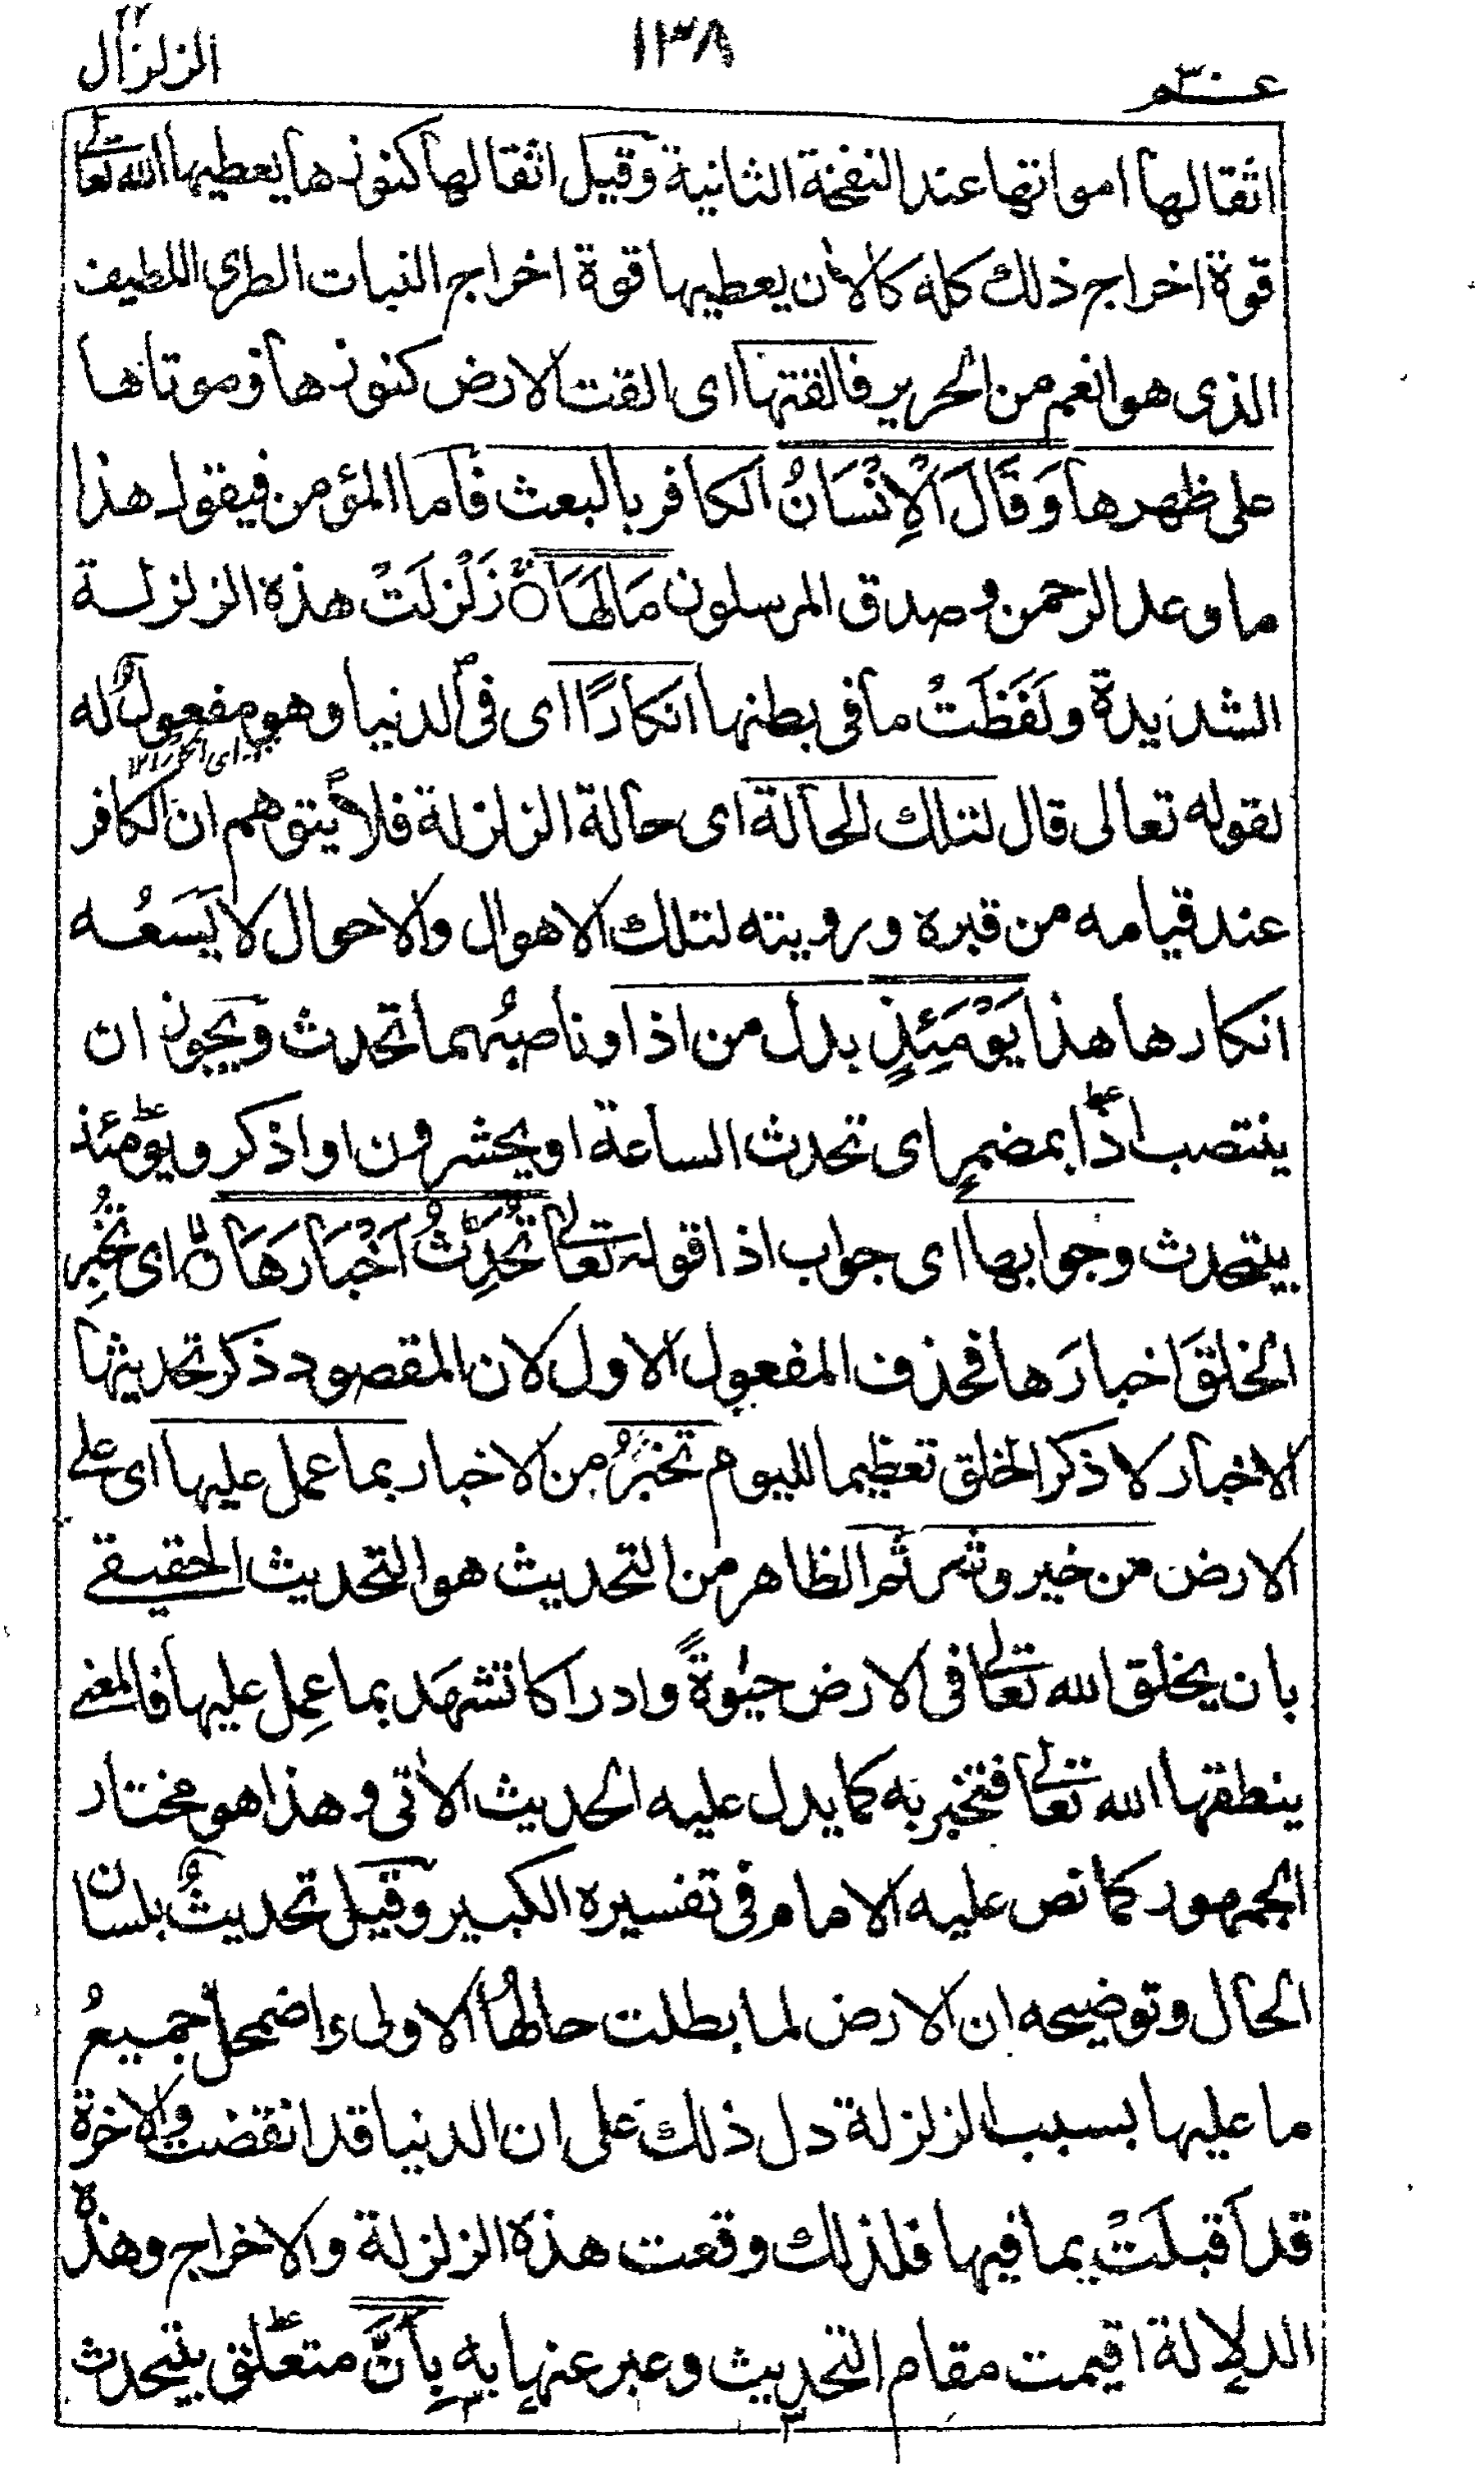 عـــم ١٣٨ الزلزال
اثقالها امواتها عند النفخة الثانية وقيل اثقالها كنوزها يعطيها الله تعالى
قوة اخراج ذلك كله كالأن يعطيها قوة اخراج النبات الطرى اللطيف
الذى هو انعم من الحرير فالقتها اى القت الارض كنوزها وموتاها
على ظهرها وَقَالَ الْاِنْسَانُ الكافر بالبعث فاما المؤمن فيقول هذا
ما وعد الرحمن وصدق المرسلون مَالَهَا زَلْزَلَتْ هذه الزلزلة
الشديدة ولَفَظَتْ ما فى بطنها انكارًا اى فى الدنيا وهو مفعولٌ له
لقوله تعالى قال لتلك الحالة اى حالة الزلزلة فلا يتوهم ان الكافر
عند قيامه من قبره ورويته لتلك الاهوال والاحوال لا يَسَعُه
انكارها هذا يَوْمَئِذٍ بدل من اذا وناصبُهما تحدث ويجوز ان
ينتصب اذا بمضمرٍ اى تحدث الساعة او يحشرون او اذكر ويومئذ
بيتحدث وجوابها اى جواب اذا قوله تعالى تُحَدِّثُ اَخْبَارَهَا اى تُخْبِر
الخلقَ اخبارَها فحذف المفعول الاول لان المقصود ذكر تحديثها
الاخبار لا ذكر الخلق تعظيما لليوم تخبرُ من الاخبار بما عمل عليها اى على
الارض من خير وشر ثم الظاهر من التحديث هو التحديث الحقيقى
بان يخلق الله تعالى فى الارض حيٰوةً وادراكا تشهَد بما عمِل عليها فالمعنى
ينطقها الله تعالى فتخبر به كما يدل عليه الحديث الأتى وهذا هو مختار
الجمهور كما نص عليه الامام فى تفسيره الكبير وقيل تحديثٌ بلسان
الحال وتوضيحه ان الارض لما بطلت حالُها الاولى واضمحل جميعُ
ما عليها بسبب الزلزلة دل ذلك على ان الدنيا قد انقضت والاخرة
قد اقبلَتْ بما فيها فلذلك وقعت هذه الزلزلة والاخراج وهذه
الدلالة اقيمت مقام التحديث وعبر عنها به بِاَنَّ متعلق بتحدث